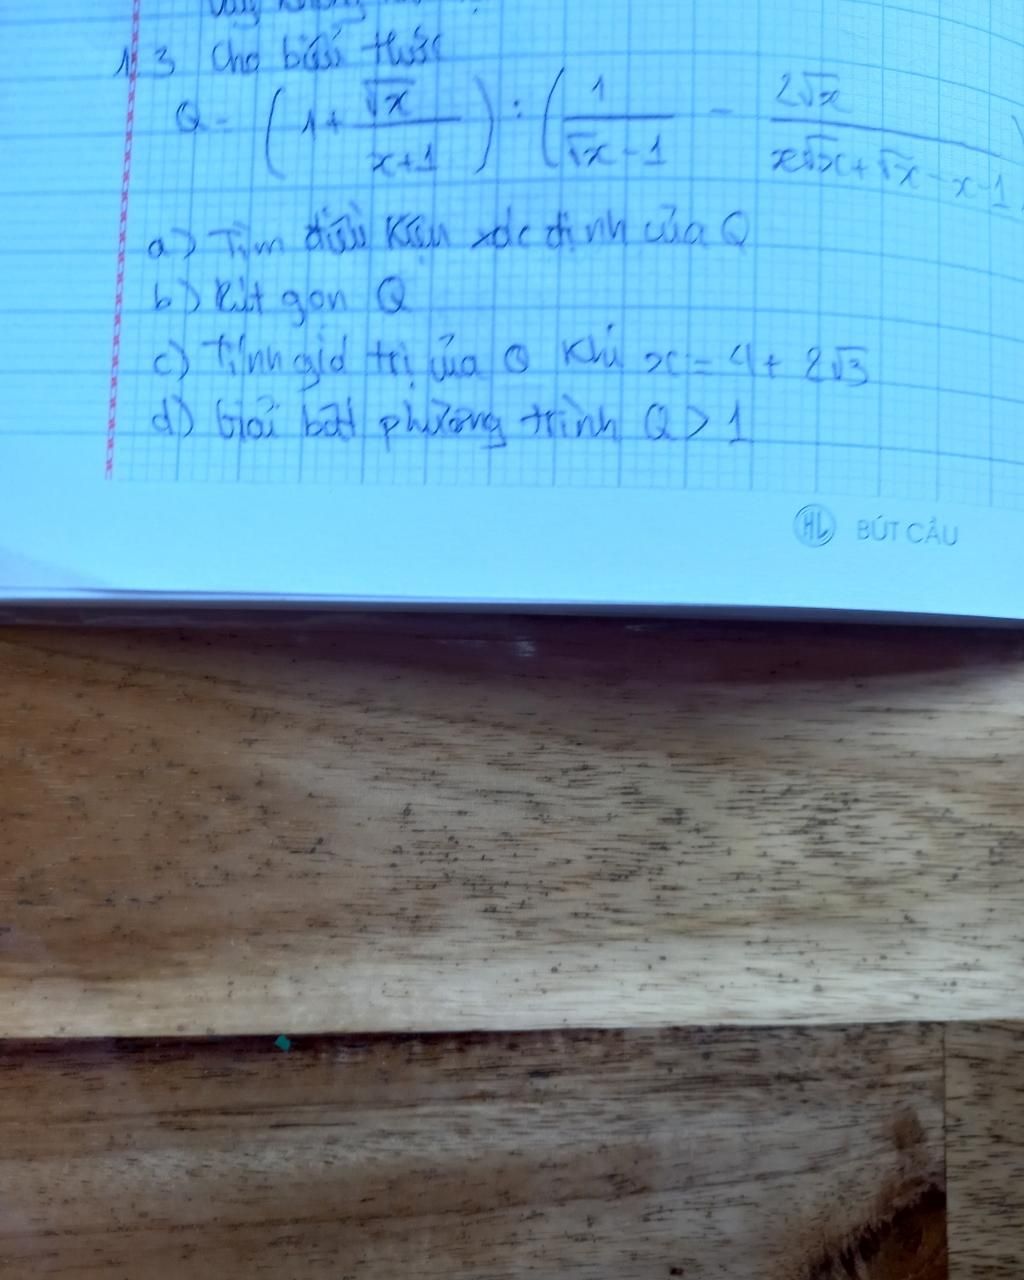 1.3 Cho biểu thức
Q = ( 1 + √x / x+1 ) : ( 1 / √x - 1 - 2√x / x√x + √x - x - 1 )
a) Tìm điều kiện xác định của Q
b) Rút gọn Q
c) Tính giá trị của Q khi x = 4 + 2√3
d) Giải bất phương trình Q > 1
HL BÚT CẦU